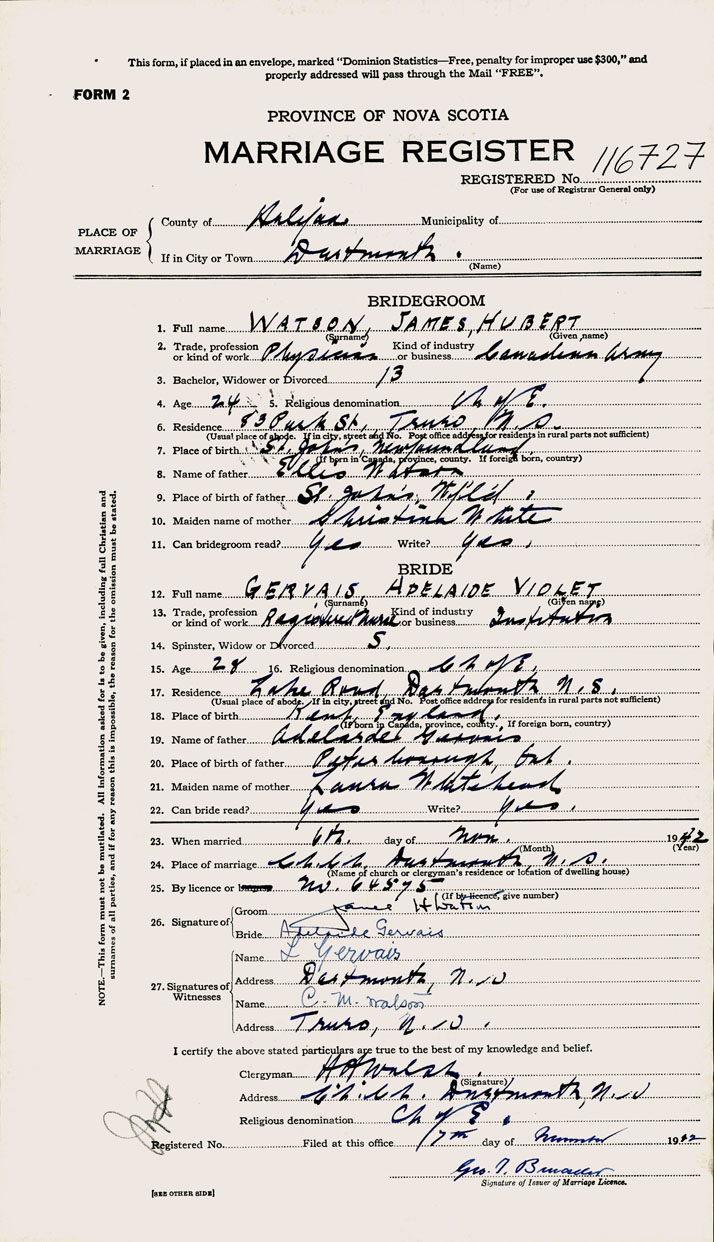 This form, if placed in an envelope, marked "Dominion Statistics—Free, penalty for improper use $300," and
properly addressed will pass through the Mail "FREE".
FORM 2
PROVINCE OF NOVA SCOTIA
MARRIAGE REGISTER 116727
REGISTERED No.
(For use of Registrar General only)
PLACE OF MARRIAGE
County of Halifax Municipality of
If in City or Town Dartmouth.
(Name)
BRIDEGROOM
1. Full name WATSON, JAMES, HUBERT
(Surname) (Given name)
2. Trade, profession or kind of work Physician Kind of industry or business Canadian Army
3. Bachelor, Widower or Divorced B
4. Age 24 5. Religious denomination Ch of E.
6. Residence 83 Park St., Truro, N.S.
(Usual place of abode. If in city, street and No. Post office address for residents in rural parts not sufficient)
7. Place of birth St. John's, Newfoundland
(If born in Canada, province, county. If foreign born, country)
8. Name of father Ellis Watson
9. Place of birth of father St. John's, Nfld.
10. Maiden name of mother Christina White
11. Can bridegroom read? Yes Write? Yes.
BRIDE
12. Full name GERVAIS, ADELAIDE VIOLET
(Surname) (Given name)
13. Trade, profession or kind of work Registered Nurse Kind of industry or business Institution
14. Spinster, Widow or Divorced S.
15. Age 28 16. Religious denomination Ch of E.
17. Residence Lake Road, Dartmouth N.S.
(Usual place of abode. If in city, street and No. Post office address for residents in rural parts not sufficient)
18. Place of birth Kent, England.
(If born in Canada, province, county. If foreign born, country)
19. Name of father Adelarde Gervais
20. Place of birth of father Peterborough, Ont.
21. Maiden name of mother Laura Whitehead
22. Can bride read? Yes Write? Yes.
23. When married 6th. day of Nov. 1942
(Month) (Year)
24. Place of marriage Ch. Ch. Dartmouth N.S.
(Name of church or clergyman's residence or location of dwelling house)
25. By licence or No. 64575
(If by licence, give number)
26. Signature of
Groom James H Watson
Bride Adelaide Gervais
27. Signatures of Witnesses
Name L Gervais
Address Dartmouth, N.S
Name C. M. Watson
Address Truro, N.S.
I certify the above stated particulars are true to the best of my knowledge and belief.
Clergyman
(Signature)
Address Ch. Ch. Dartmouth, N.S
Religious denomination Ch of E.
Registered No. Filed at this office 17th day of November 1942
Geo.
Signature of Issuer of Marriage Licence.
[SEE OTHER SIDE]
NOTE.—This form must not be mutilated. All information asked for is to be given, including full Christian and
surnames of all parties, and if for any reason this is impossible, the reason for the omission must be stated.